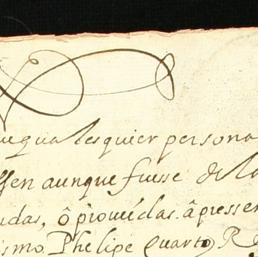 qualesquier persona
aunque fuesse de la
das, ô proueidas. âpressen
ismo Phelipe Quarto Re